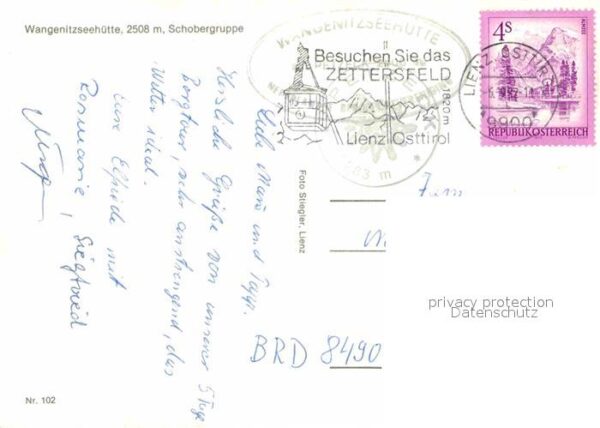 Wangenitzseehütte, 2508 m, Schobergruppe
WANGENITZSEEHÜTTE
Besuchen Sie das
ZETTERSFELD
1820 m
Lienz Osttirol
LIENZ, OSTTIROL
9900
4S
REPUBLIK ÖSTERREICH
Liebe Mami und Papp.
Herzliche Grüße von unserer 5 Tage
Bergtour, sehr anstrengend, das
Wetter ideal.
Eure Elfriede mit
Rosmarie, Siegfried
Foto Stiegler, Lienz
Fam
BRD 8490
privacy protection
Datenschutz
Nr. 102